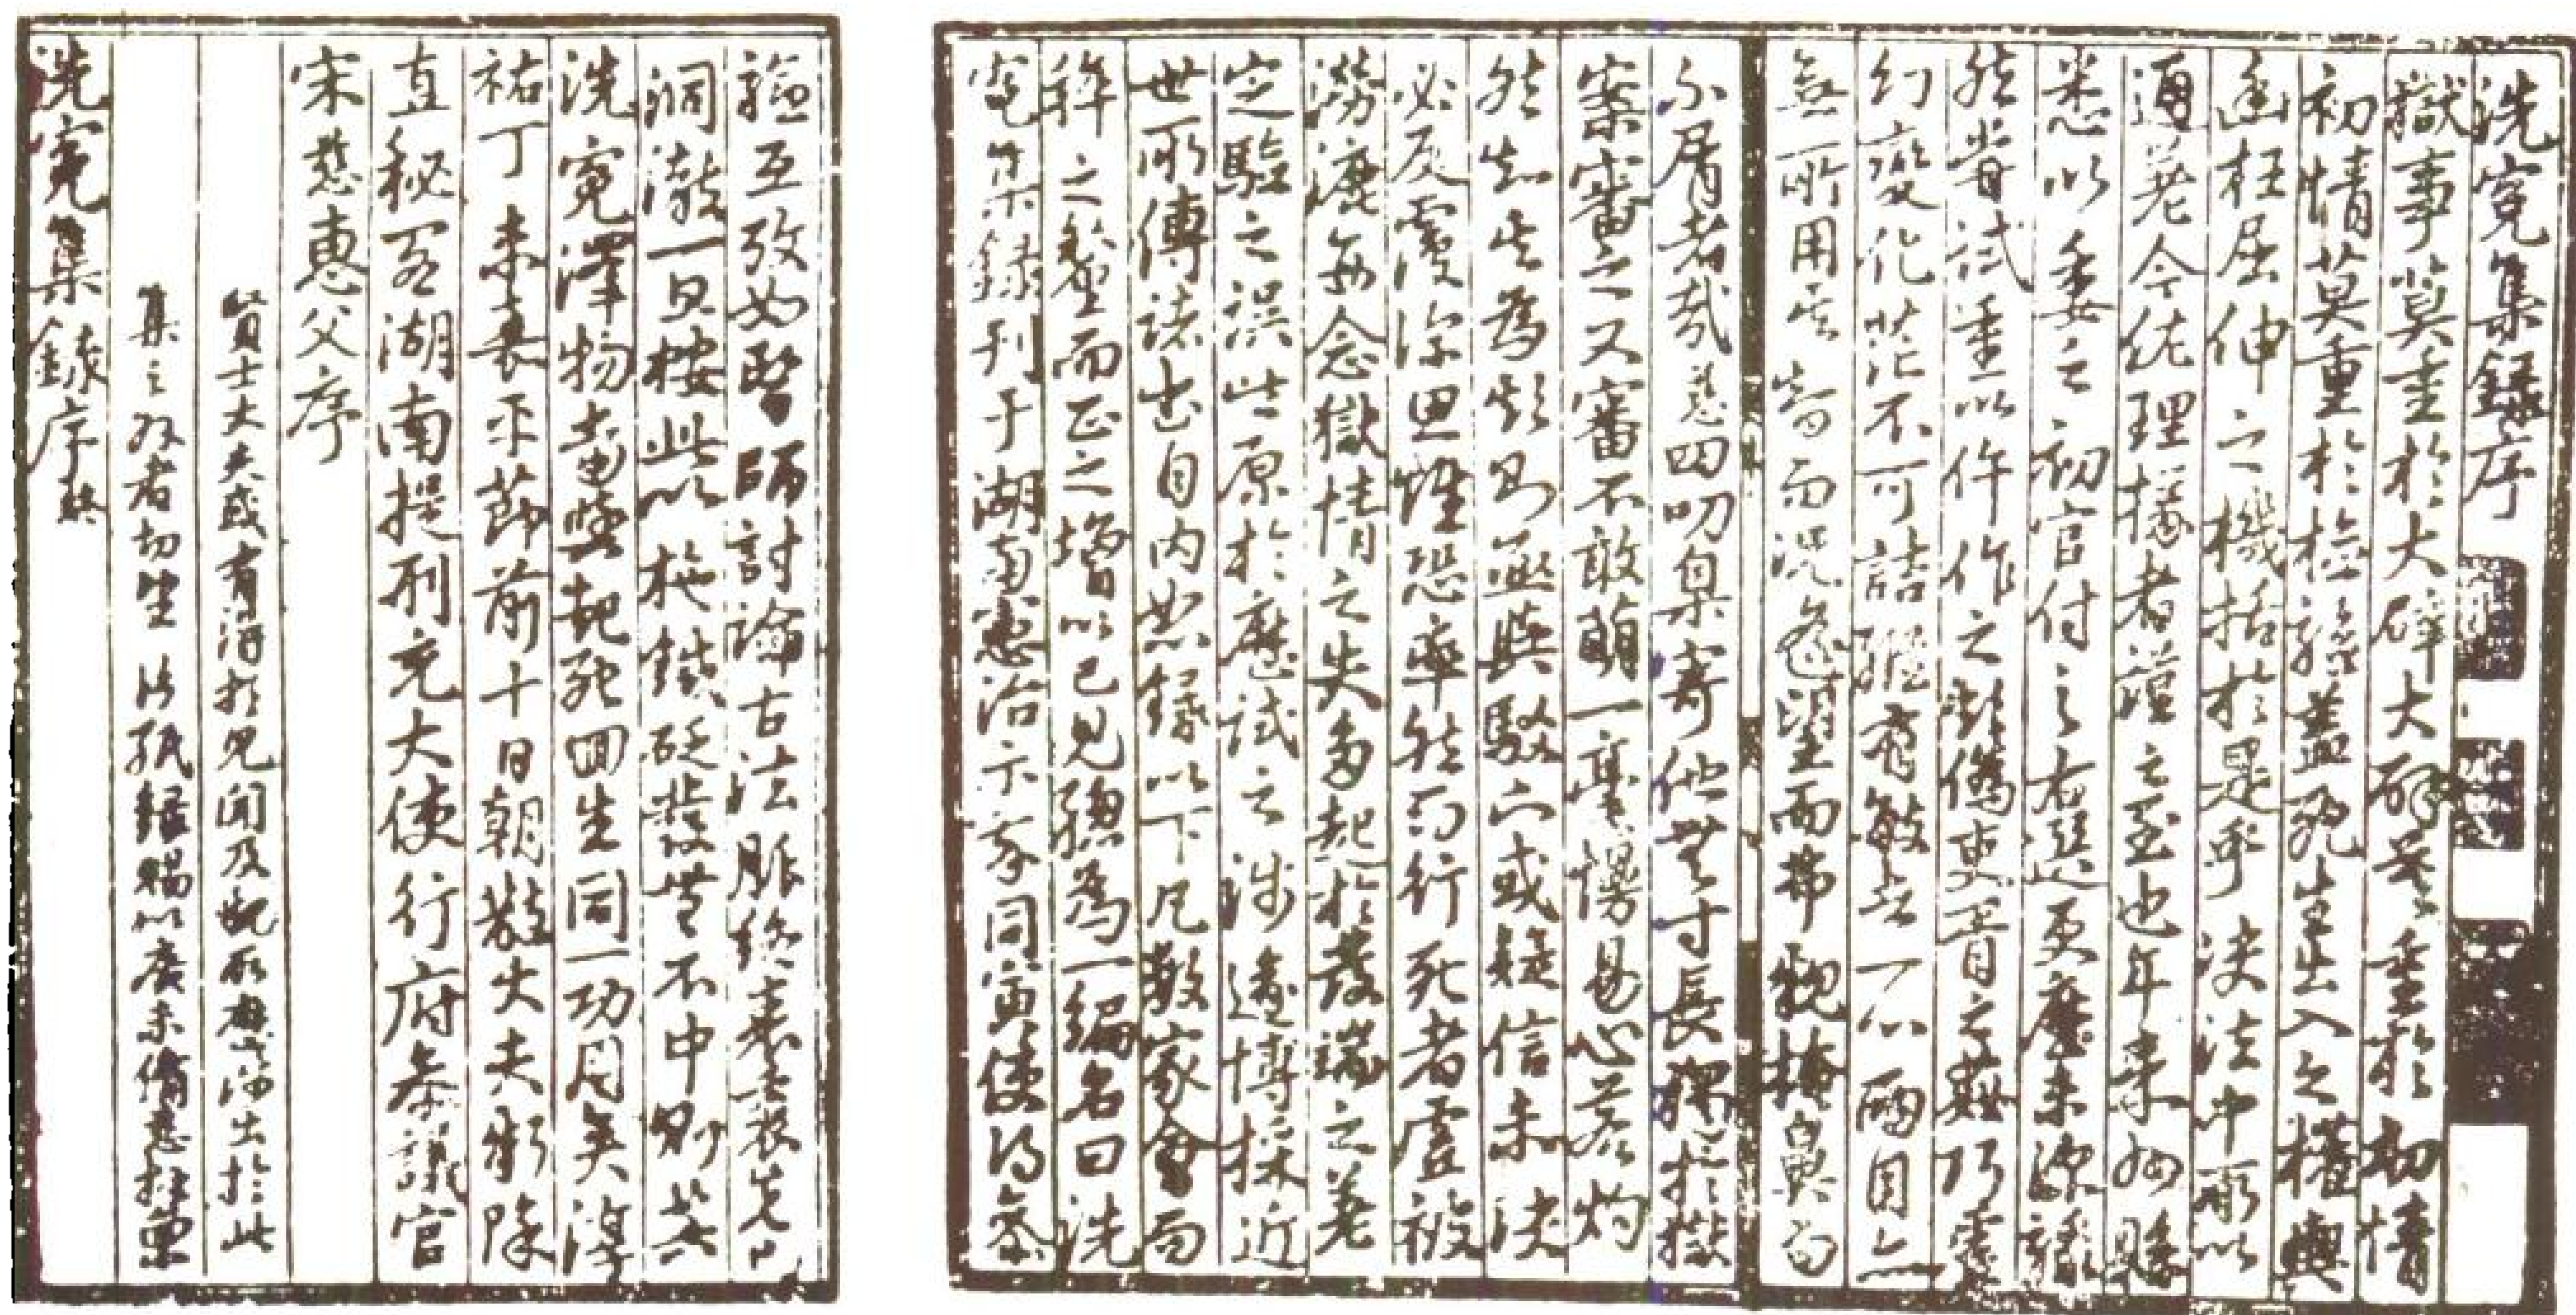 洗冤集錄序
獄事莫重於大辟大辟莫重於初情
初情莫重於檢驗蓋死生出入之權輿
幽枉屈伸之機括於是乎決法中所以
通差今佐理掾者謹之至也年來州縣
悉以委之初官付之右選更歷未深驟
然嘗試重以仵作之欺偽吏胥之姦巧虛
幻變化茫不可詰縱有敏者一心兩目亦
無所用其智而況遙望而弗親掩鼻而
不屑者哉慈四叨臬寄他無寸長獨於獄
案審之又審不敢萌一毫慢易心若灼
然知其為欺則亟與駁下或疑信未決
必反覆深思惟恐率然而行死者虛被
澇漉每念獄情之失多起於發端之差
定驗之誤皆原於歷試之淺遂博採近
世所傳諸書自內恕錄以下凡數家會而
稡之釐而正之增以己見總為一編名曰洗
冤集錄刊于湖南憲治示我同寅使得參
驗互攷如醫師討論古法脉絡表裏先已
洞澈一旦按此以施鍼砭發無不中則其
洗冤澤物當與起死回生同一功用矣淳
祐丁未嘉平節前十日朝散大夫新除
直秘閣湖南提刑充大使行府參議官
宋慈惠父序
賢士大夫或有得於見聞及親所歷涉出於此
集之外者切望 片紙錄賜以廣未備慈拜稟
洗冤集錄序終